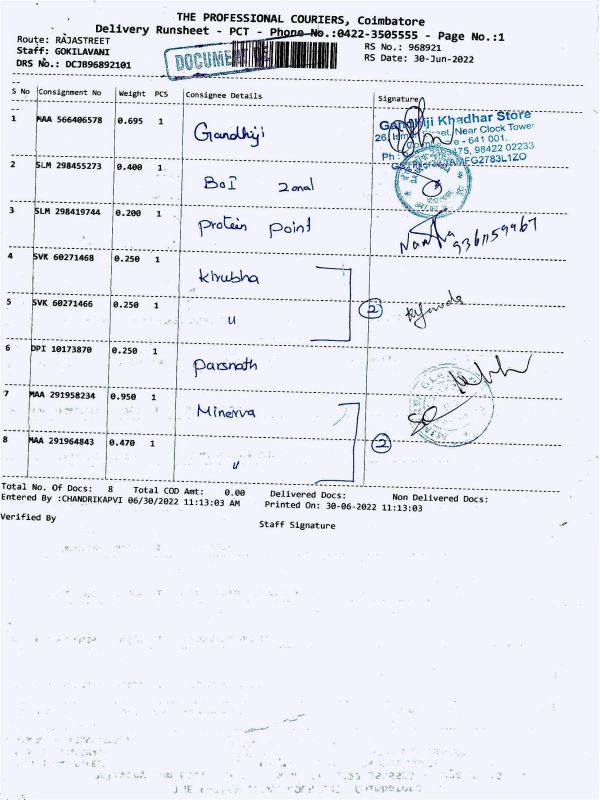 THE PROFESSIONAL COURIERS, Coimbatore
Delivery Runsheet - PCT - Phone No.:0422-3505555 - Page No.:1
Route: RAJASTREET
RS No.: 968921
Staff: GOKILAVANI
RS Date: 30-Jun-2022
DRS No.: DCJB96892101
DOCUME
S No Consignment No Weight PCS Consignee Details Signature
1 MAA 566406578 0.695 1 Gandhiji
Khadhar Store
Near Clock Tower
641 001.
98422 02233
2 SLM 298455273 0.400 1 BOI Zonal
3 SLM 298419744 0.200 1 Protein Point
4 SVK 60271468 0.250 1 Kirubha
5 SVK 60271466 0.250 1 "
2
6 DPI 10173870 0.250 1 Parsnath
7 MAA 291958234 0.950 1 Minerva
8 MAA 291964843 0.470 1 "
2
Total No. Of Docs: 8 Total COD Amt: 0.00 Delivered Docs: Non Delivered Docs:
Entered By :CHANDRIKAPVI 06/30/2022 11:13:03 AM Printed On: 30-06-2022 11:13:03
Verified By
Staff Signature